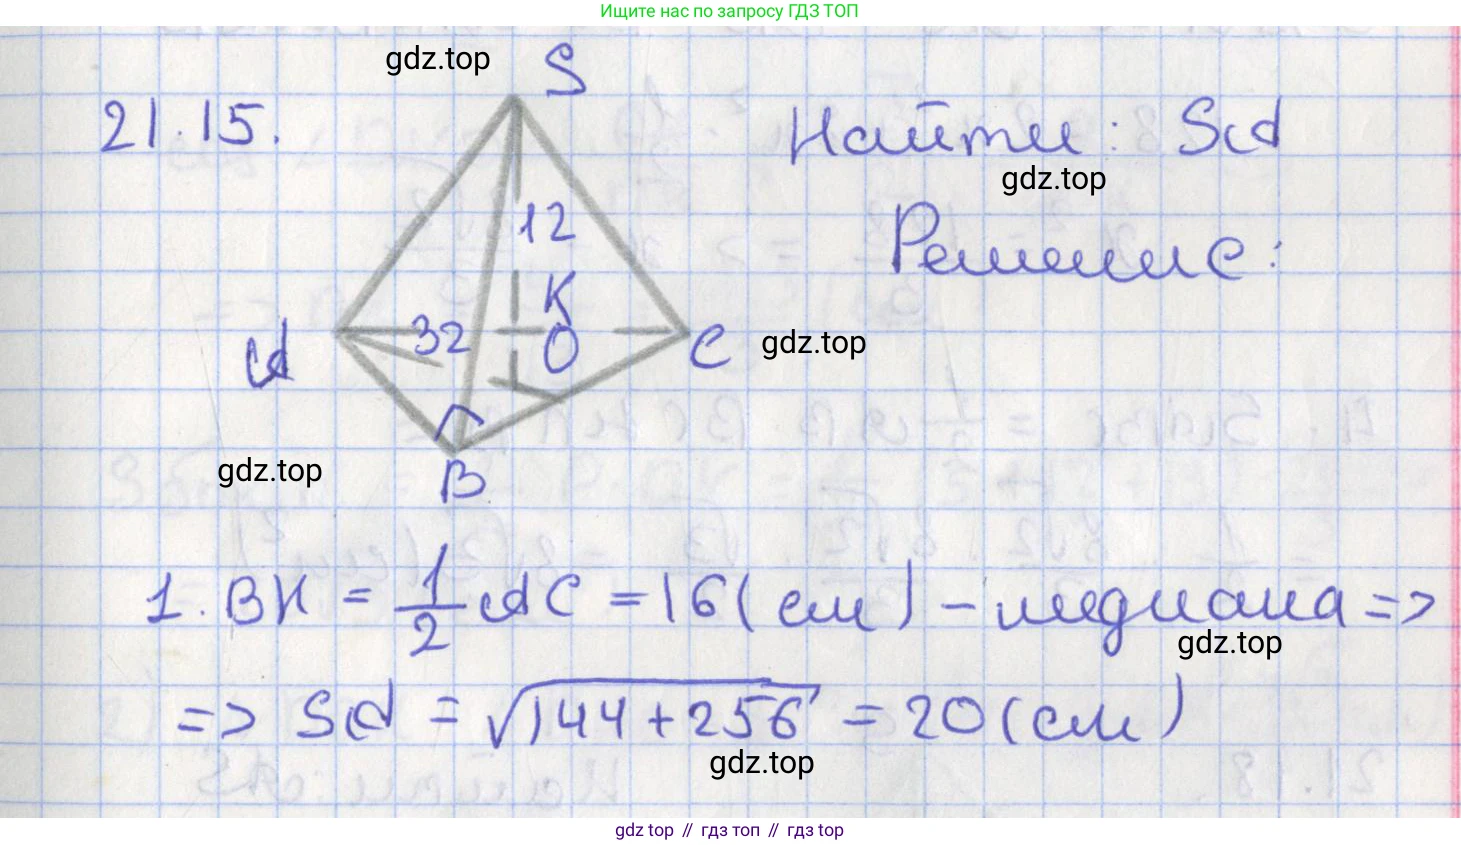 Ищите нас по запросу ГДЗ ТОП
gdz.top
S
21.15.
Найти: SA
gdz.top
Решение:
12
K
A
32
O
C
gdz.top
gdz.top
B
1. BK = 1/2 AC = 16 (см) – медиана =>
gdz.top
=> SA = √144+256 = 20 (см)
gdz.top
gdz top // гдз топ // гдз top